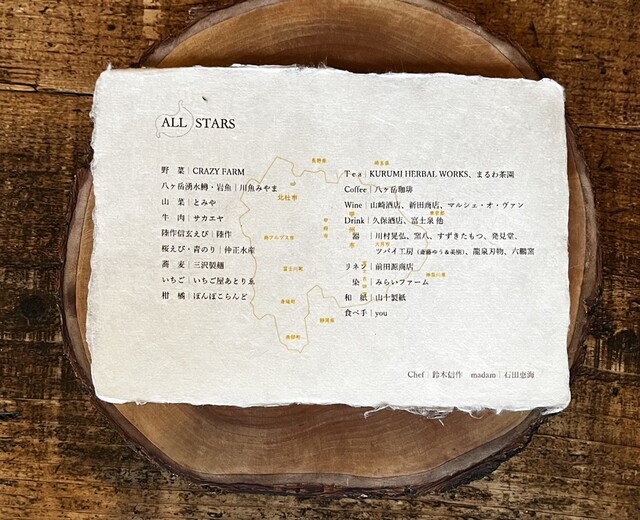 ALL STARS
野 菜 | CRAZY FARM
八ヶ岳湧水鱒・岩魚 | 川魚みやま
山 菜 | とみや
牛 肉 | サカエヤ
陸作信玄えび | 陸作
桜えび・青のり | 仲正水産
蕎 麦 | 三沢製麺
いちご | いちご屋あとりゑ
柑 橘 | ぽんぽこらんど
Tea | KURUMI HERBAL WORKS、まるわ茶園
Coffee | 八ヶ岳珈琲
Wine | 山崎酒店、新田商店、マルシェ・オ・ヴァン
Drink | 久保酒店、富士泉 他
器 | 川村晃弘、窯八、すずきたもつ、発見堂、
ツバイ工房(斎藤ゆう&美樹)、龍泉刃物、六鵬窯
リネン | 前田源商店
染 | みらいファーム
和 紙 | 山十製紙
食べ手 | you
長野県
埼玉県
北杜市
甲府市
南アルプス市
富士川町
身延町
南部町
静岡県
神奈川県
東京都
Chef | 鈴木信作 madam | 石田恵海